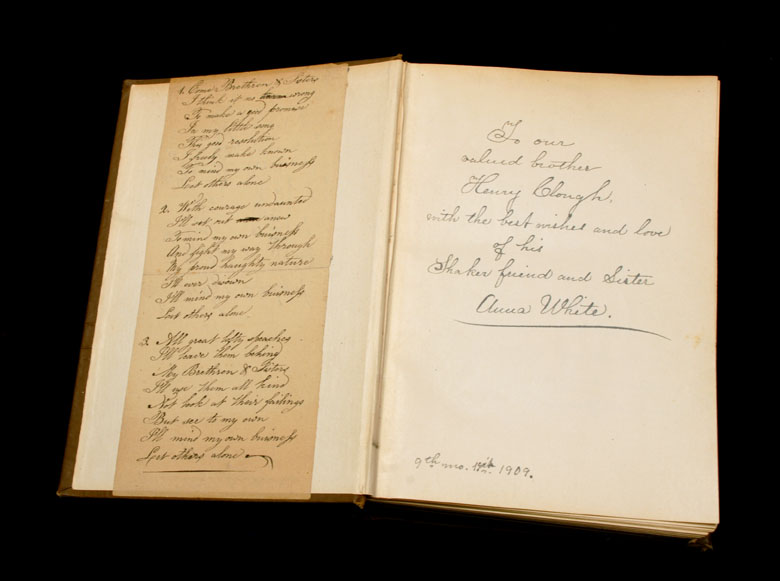 1. Come Brethren & Sisters
I think it no wrong
To make a good promise
In my little song
This good resolution
I freely make known
To mind my own buisness
Let others alone
2. With courage undaunted
I'll set out anew
To mind my own buisness
And fight my way through
My proud haughty nature
I'll ever disown
I'll mind my own buisness
Let others alone.
3. All great lofty speaches
I'll leave them behing
My Brethren & Sisters
I'll use them all kind
Not look at their failings
But see to my own
I'll mind my own buisness
Let others alone
To our
valued brother
Henry Clough.
with the best wishes and love
of his
Shaker friend and Sister
Anna White.
9th mo. 1909.